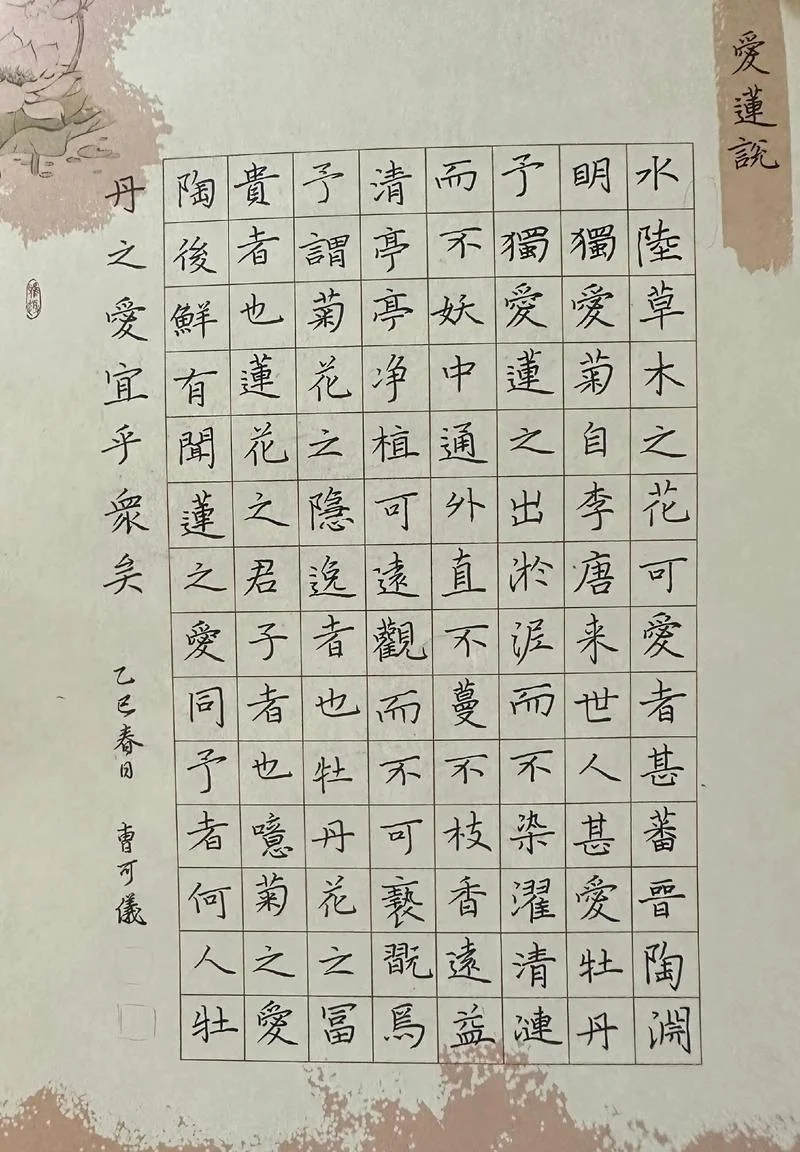 愛蓮說
水陸草木之花可愛者甚蕃晉陶淵
明獨愛菊自李唐来世人甚愛牡丹
予獨愛蓮之出淤泥而不染濯清漣
而不妖中通外直不蔓不枝香遠益
清亭亭净植可遠觀而不可褻翫焉
予謂菊花之隱逸者也牡丹花之冨
貴者也蓮花之君子者也噫菊之愛
陶後鮮有聞蓮之愛同予者何人牡
丹之愛宜乎衆矣
乙巳春日 曹可儀